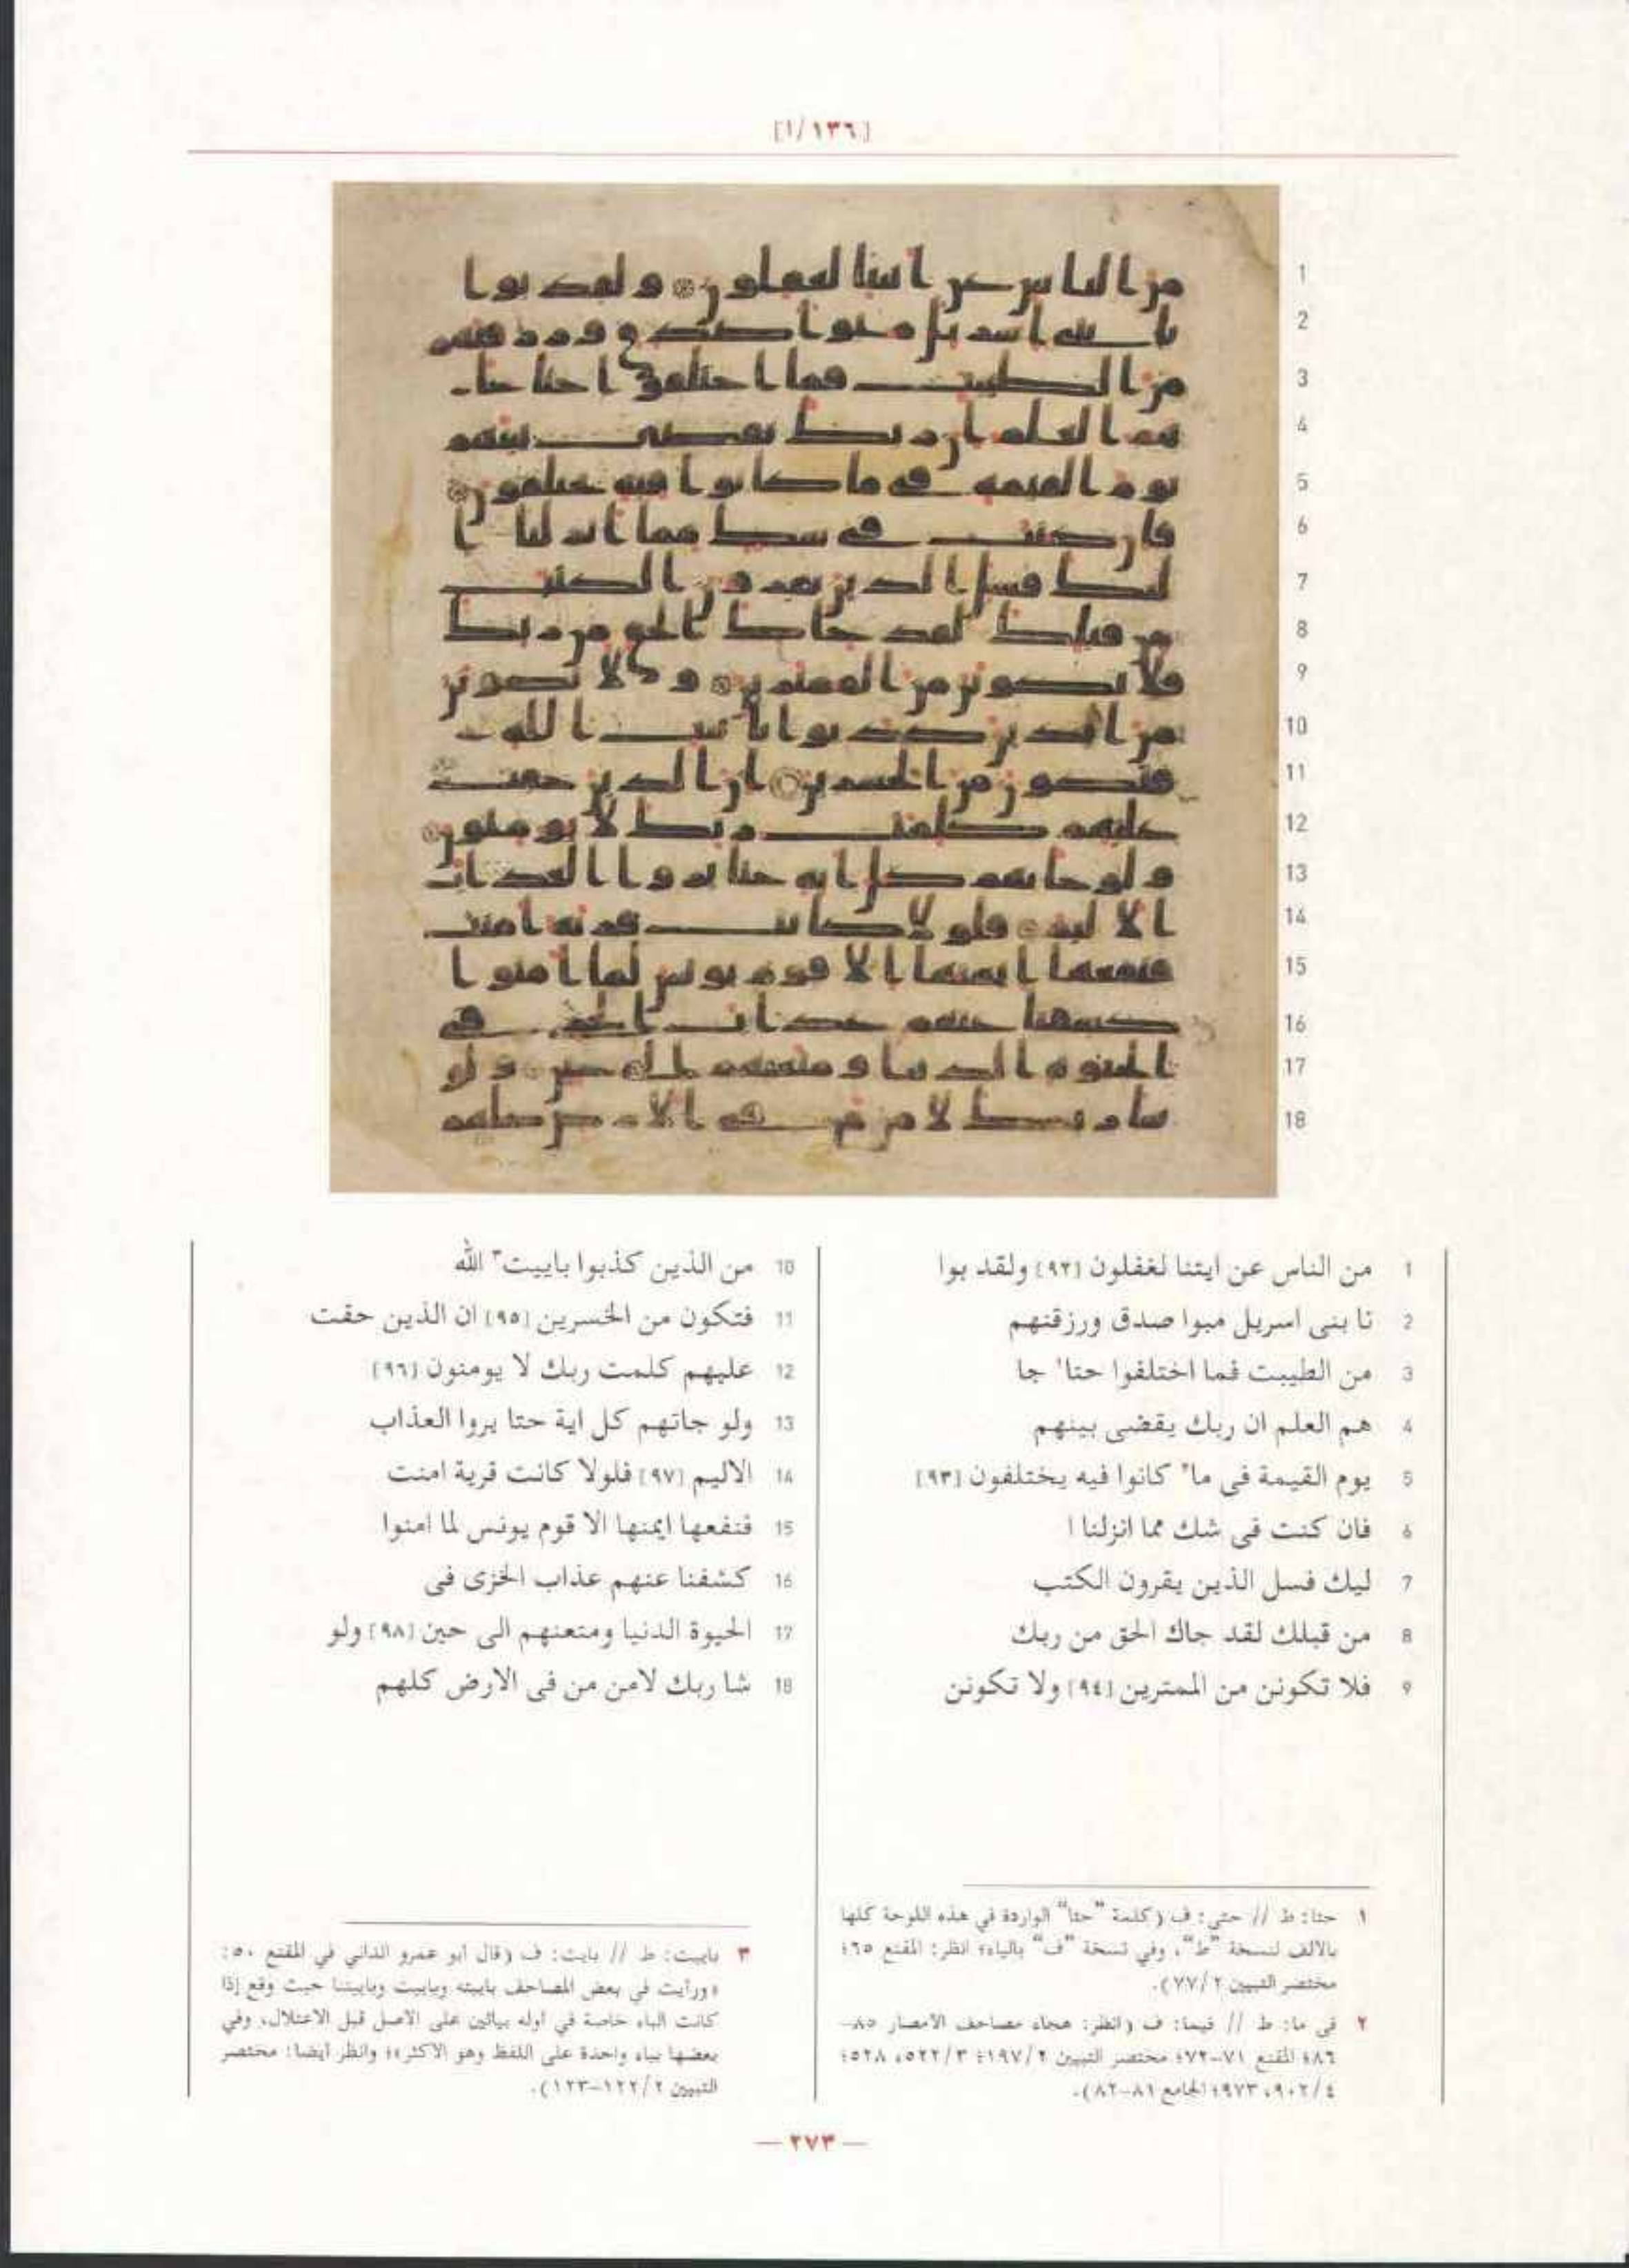 [١٣٦/ا]
1 من الناس عن ايتنا لغفلون [٩٢] ولقد بوا
2 نا بنى اسريل مبوا صدق ورزقنهم
3 من الطيبت فما اختلفوا حتا١ جا
4 هم العلم ان ربك يقضى بينهم
5 يوم القيمة فى ما٢ كانوا فيه يختلفون [٩٣]
6 فان كنت فى شك مما انزلنا ا
7 ليك فسل الذين يقرون الكتب
8 من قبلك لقد جاك الحق من ربك
9 فلا تكونن من الممترين [٩٤] ولا تكونن
10 من الذين كذبوا باييت٣ الله
11 فتكون من الخسرين [٩٥] ان الذين حقت
12 عليهم كلمت ربك لا يومنون [٩٦]
13 ولو جاتهم كل اية حتا يروا العذاب
14 الاليم [٩٧] فلولا كانت قرية امنت
15 فنفعها ايمنها الا قوم يونس لما امنوا
16 كشفنا عنهم عذاب الخزى فى
17 الحيوة الدنيا ومتعنهم الى حين [٩٨] ولو
18 شا ربك لامن من فى الارض كلهم
١ حتا: ط // حتى: ف (كلمة "حتا" الواردة في هذه اللوحة كلها
بالالف لنسخة "ط"، وفي نسخة "ف" بالياء؛ انظر: المقنع ٦٥؛
مختصر التبيين ٢/٧٧).
٢ فى ما: ط // فيما: ف (انظر: هجاء مصاحف الامصار ٨٥-
٨٦؛ المقنع ٧١-٧٢؛ مختصر التبيين ٢/١٩٧؛ ٣/٥٢٢، ٥٢٨؛
٤/٩٠٢، ٩٧٣؛ الجامع ٨١-٨٢).
٣ باييت: ط // بايت: ف (قال ابو عمرو الداني في المقنع ٥٠:
«ورأيت في بعض المصاحف باييته وباييت وباييتنا حيث وقع إذا
كانت الباء خاصة في اوله بيائين على الاصل قبل الاعتلال، وفي
بعضها بياء واحدة على اللفظ وهو الاكثر»؛ وانظر ايضا: مختصر
التبيين ٢/١٢٢-١٢٣).
— ٢٧٣ —